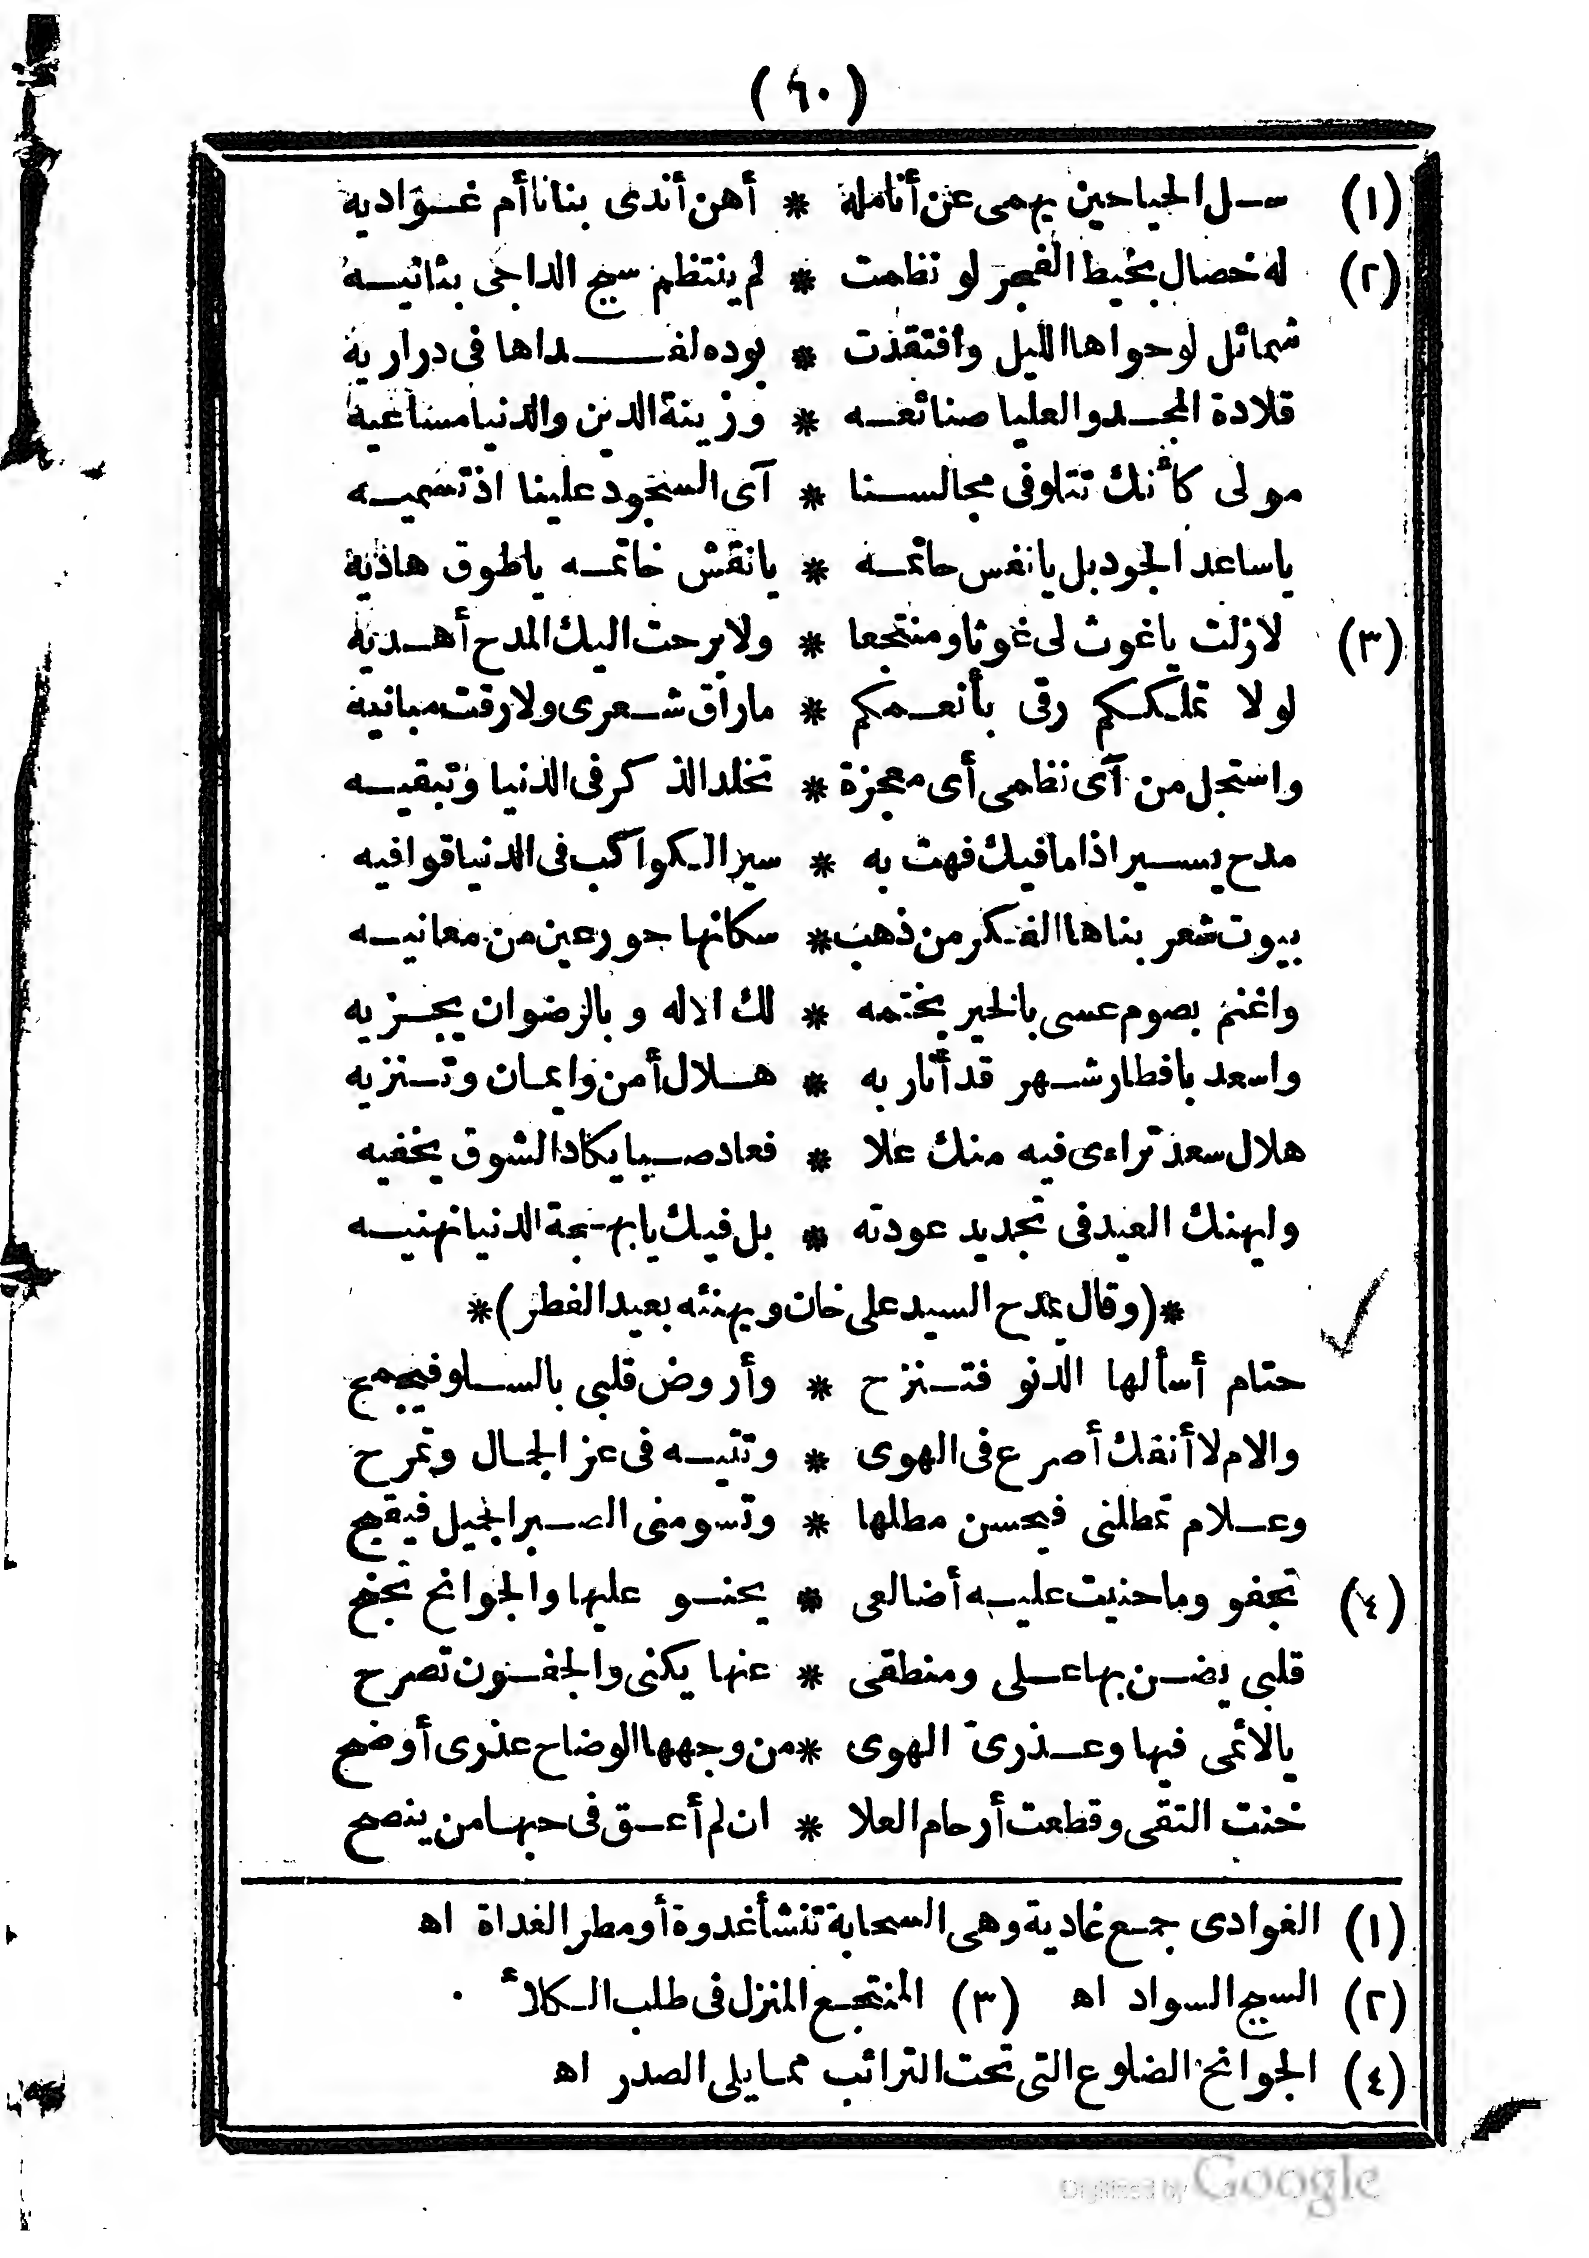 (٦٠)
(١) سـل الحيا حين يهمى عن أنامله * أهن أندى بنانا أم غـواديه
(٢) له خصال بخيط الفجر لو نظمت * لم ينتظم سبج الداجى بثانيـه
شمائل لو حواها الليل وافتقدت * بوده لفـداها فى دراريه
قلادة المجـد والعليا صنائعـه * وزينة الدين والدنيا مساعيه
مولى كأنك تتلو فى مجالسـنا * آى السجود علينا اذ تسميـه
يا ساعد الجود بل يا نفس حاتمـه * يا نقش خاتمـه يا طوق هاديه
(٣) لازلت يا غوث لى غوثا ومنتجعا * ولا برحت اليك المدح أهـديه
لولا تملـككم رقى بأنعـمكم * ما راق شـعرى ولا رقت مبانيه
واستجل من آى نظمى أى معجزة * تخلد الذكر فى الدنيا وتبقيـه
مدح يسـير اذا ما فيك فهت به * سير الـكواكب فى الدنيا قوافيه
بيوت شعر بناها الفـكر من ذهب * سكانها حور عين من معانيـه
واغنم بصوم عسى بالخير يختمه * لك الاله وبالرضوان يجـزيه
واسعد بافطار شـهر قد أنار به * هـلال أمن وايمـان وتـنزيه
هلال سعد تراءى فيه منك علا * فعاد صـبا يكاد الشوق يخفيه
وليهنك العيد فى تجديد عودته * بل فيك يا بهـجة الدنيا نهنيـه
*(وقال يمدح السيد على خان ويهنئه بعيد الفطر)*
حتام أسألها الدنو فتـنزح * وأروض قلبى بالسـلو فيجمح
والام لا أنفك أصرع فى الهوى * وتتيـه فى عز الجمـال وتمرح
وعـلام تمطلنى فيحسن مطلها * وتسومنى الصـبر الجميل فيقبح
(٤) تجفو وما حنيت عليـه أضالعى * يحنـو عليها والجوانح تجنح
قلبى يضـن بها عـلى ومنطقى * عنها يكنى والجفـون تصرح
يا لائمى فيها وعـذرىّ الهوى * من وجهها الوضاح عذرى أوضح
خنت التقى وقطعت أرحام العلا * ان لم أعـق فى حبهـا من ينصح
(١) الغوادى جمـع غادية وهى السحابة تنشأ غدوة أو مطر الغداة اه
(٢) السبج السواد اه (٣) المنتجـع المنزل فى طلب الـكلأ
(٤) الجوانح الضلوع التى تحت الترائب ممـا يلى الصدر اه
Digitized by Google